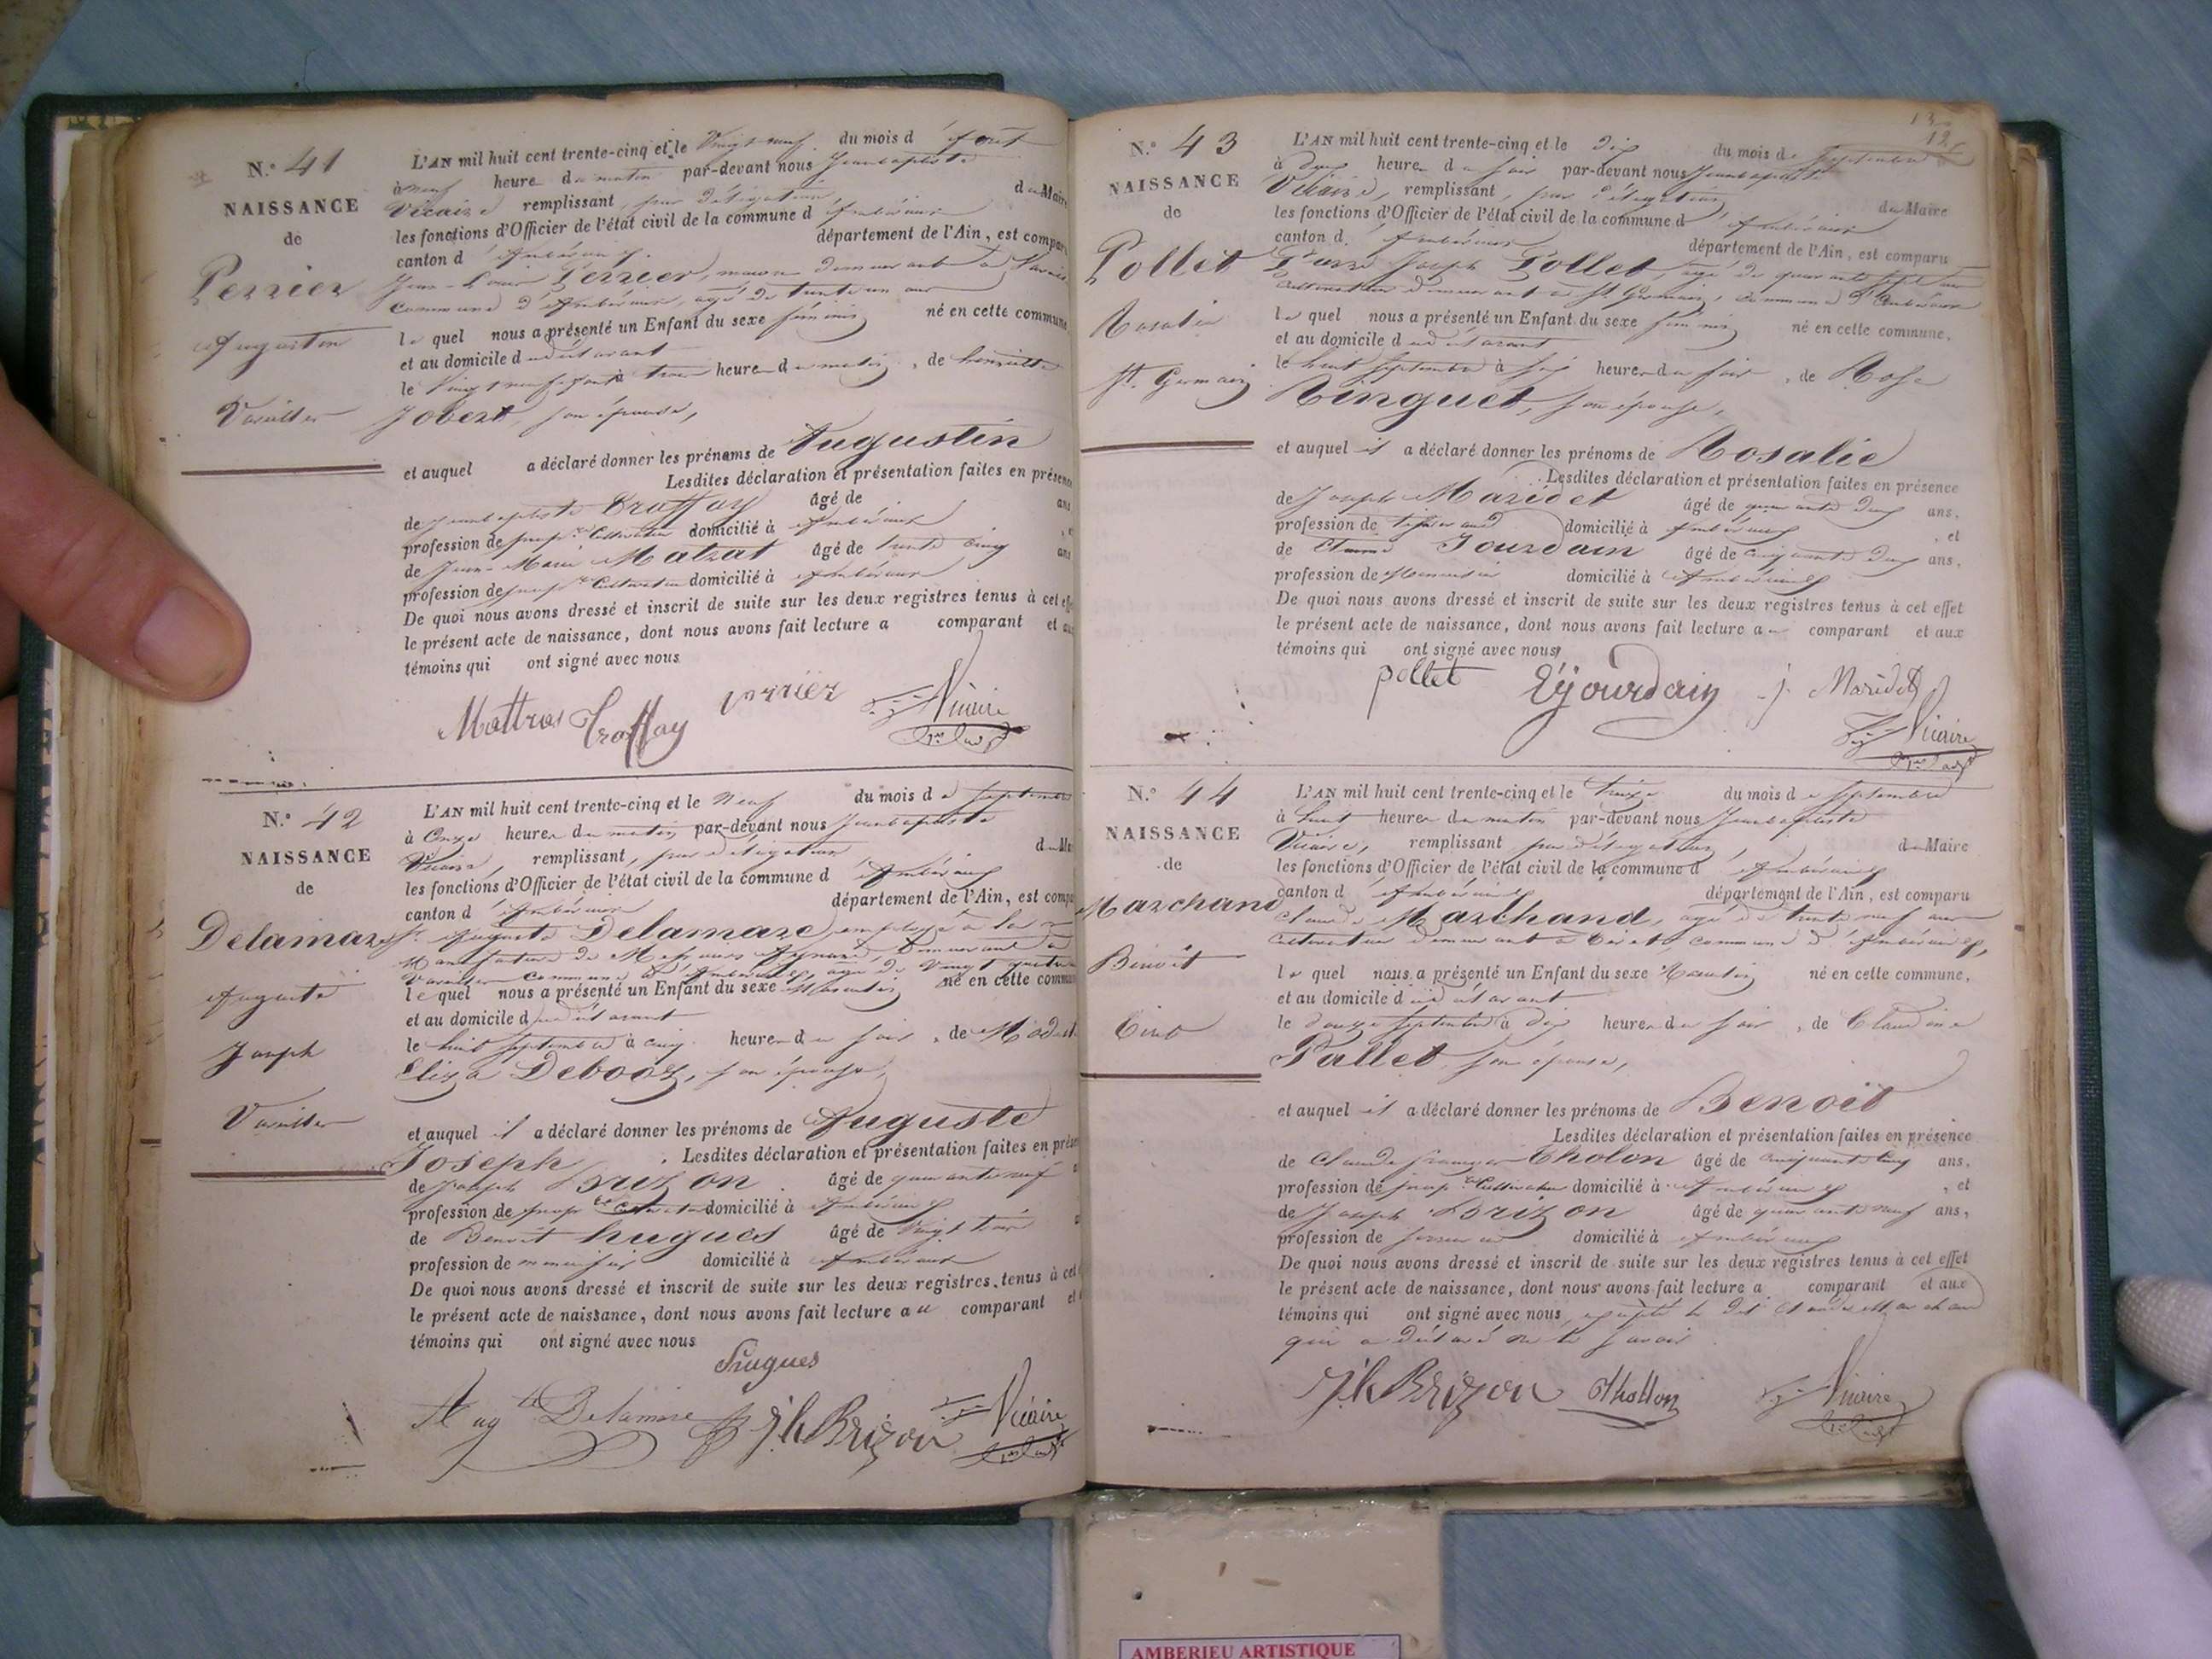 N.° 41
NAISSANCE
de
Perrier
Augustin
Vareilles
L'AN mil huit cent trente-cinq et le Vingt neuf du mois d'Aout
à neuf heure du matin par-devant nous Jean baptiste
Vicaire remplissant, par délégation, du Maire
les fonctions d'Officier de l'état civil de la commune d'Ambérieux
canton d'Ambérieux département de l'Ain, est comparu
Jean-Louis Perrier, maçon demeurant à Vareilles
commune d'Ambérieux, agé de trente un ans
le quel nous a présenté un Enfant du sexe né en cette commune
et au domicile du déclarant
le Vingt neuf aout à trois heure du matin, de
Jobert, son épouse,
et auquel a déclaré donner les prénoms de Augustin
Lesdites déclaration et présentation faites en présence
de Jean baptiste Croffay âgé de ans
profession de prop.re Cultivateur domicilié à Ambérieux, et
de Jean-Marie Matrat âgé de trente cinq ans
profession de prop.re Cultivateur domicilié à Ambérieux
De quoi nous avons dressé et inscrit de suite sur les deux registres tenus à cet effet
le présent acte de naissance, dont nous avons fait lecture a comparant et aux
témoins qui ont signé avec nous
Mattras Croffay perrier Vicaire
N.° 42
NAISSANCE
de
Delamare
Auguste
Joseph
Vareilles
L'AN mil huit cent trente-cinq et le Neuf du mois de Septembre
à Onze heures du matin par-devant nous Jean baptiste
Vicaire, remplissant, par délégation du Maire
les fonctions d'Officier de l'état civil de la commune d'Ambérieux
canton d'Ambérieux département de l'Ain, est comparu
Sr. Auguste Delamare, employé à la
Manufacture de Messieurs demeurant à
Vareilles commune d'Ambérieux, agé de Vingt quatre
le quel nous a présenté un Enfant du sexe Masculin né en cette commune
et au domicile du déclarant
le huit Septembre à cinq heures du soir, de Modeste
Eliza Debooz, son épouse,
et auquel il a déclaré donner les prénoms de Auguste
Joseph. Lesdites déclaration et présentation faites en présence
de Joseph Brizon âgé de quarante neuf
profession de prop.re Cultivateur domicilié à Ambérieux
de Benoit hugues âgé de Vingt trois
profession de menuisier domicilié à Ambérieux
De quoi nous avons dressé et inscrit de suite sur les deux registres tenus à cet
le présent acte de naissance, dont nous avons fait lecture au comparant et
témoins qui ont signé avec nous
hugues
Aug.te Delamare Jh Brizon Vicaire
13
N.° 43
NAISSANCE
de
Pollet
Rosalie
St. Germain
L'AN mil huit cent trente-cinq et le dix du mois de Septembre
à deux heure du soir par-devant nous Jean baptiste
Vicaire, remplissant, par délégation, du Maire
les fonctions d'Officier de l'état civil de la commune d'Ambérieux
canton d'Ambérieux département de l'Ain, est comparu
Pierre Joseph Pollet agé de quarante sept ans
cultivateur demeurant à St. Germain, commune d'Ambérieux
le quel nous a présenté un Enfant du sexe feminin né en cette commune,
et au domicile du déclarant
le huit Septembre à six heures du soir, de Rose
Ringuet, son épouse,
et auquel il a déclaré donner les prénoms de Rosalie
Lesdites déclaration et présentation faites en présence
de Joseph Maridet âgé de quarante deux ans,
profession de tisserand domicilié à Ambérieux, et
de Etienne Jourdain âgé de cinquante deux ans,
profession de Menuisier domicilié à Ambérieux
De quoi nous avons dressé et inscrit de suite sur les deux registres tenus à cet effet
le présent acte de naissance, dont nous avons fait lecture au comparant et aux
témoins qui ont signé avec nous,
pollet Ejourdain j. Maridet
Vicaire
N.° 44
NAISSANCE
de
Marchand
Benoit
Tiret
L'AN mil huit cent trente-cinq et le treize du mois de Septembre
à huit heures du matin par-devant nous Jean baptiste
Vicaire, remplissant par délégation, du Maire
les fonctions d'Officier de l'état civil de la commune d'Ambérieux
canton d'Ambérieux département de l'Ain, est comparu
Claude Marchand, agé de trente neuf ans
cultivateur demeurant à Tiret, commune d'Ambérieux,
le quel nous a présenté un Enfant du sexe Masculin né en cette commune,
et au domicile du déclarant
le douze Septembre à dix heures du soir, de Claudine
Pallet, son épouse,
et auquel il a déclaré donner les prénoms de Benoit
Lesdites déclaration et présentation faites en présence
de Claude françois Tholon âgé de cinquante cinq ans,
profession de prop.re Cultivateur domicilié à Ambérieux, et
de Joseph Brizon âgé de quarante neuf ans,
profession de domicilié à Ambérieux
De quoi nous avons dressé et inscrit de suite sur les deux registres tenus à cet effet
le présent acte de naissance, dont nous avons fait lecture a comparant et aux
témoins qui ont signé avec nous, excepté le dit Claude Marchand
qui a déclaré ne le savoir
Jh Brizon Thollon Vicaire
AMBERIEU ARTISTIQUE